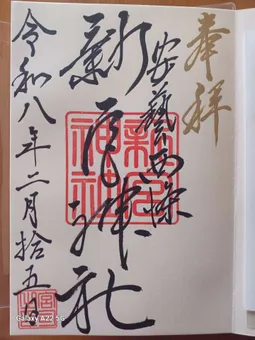 奉拝
安藝西條
新宮神社
新宮
神社
令和八年二月拾五日
Galaxy A22 5G